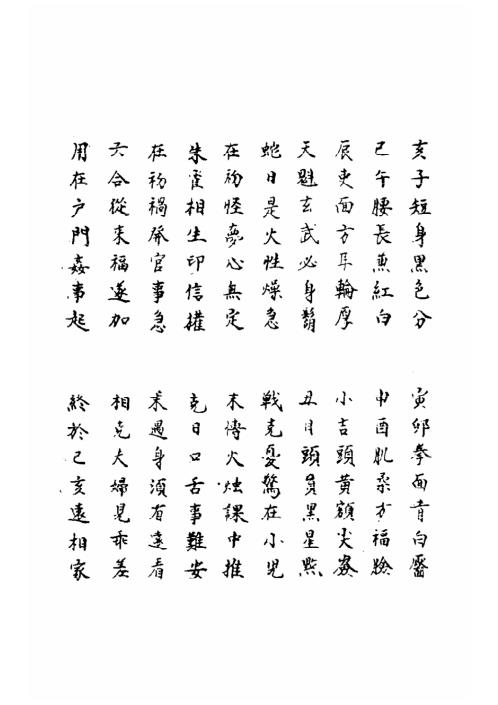 亥子短身黑色分 寅卯拳面青白靨
巳午腰長魚紅白 申酉肌柔方福臉
辰吏面方耳輪厚 小吉頭黃額尖
天魁玄武必身鬍 丑月頭員黑星點
蛇日是火性燥急 戰克憂驚在小児
在初怪夢心無定 末傳火燭課中推
朱雀相生印信權 克日口舌事難安
在初禍發官事急 未遇身須有遠看
六合從來福遂加 相克夫婦見乖差
用在户門姦事起 終於己亥遠相家